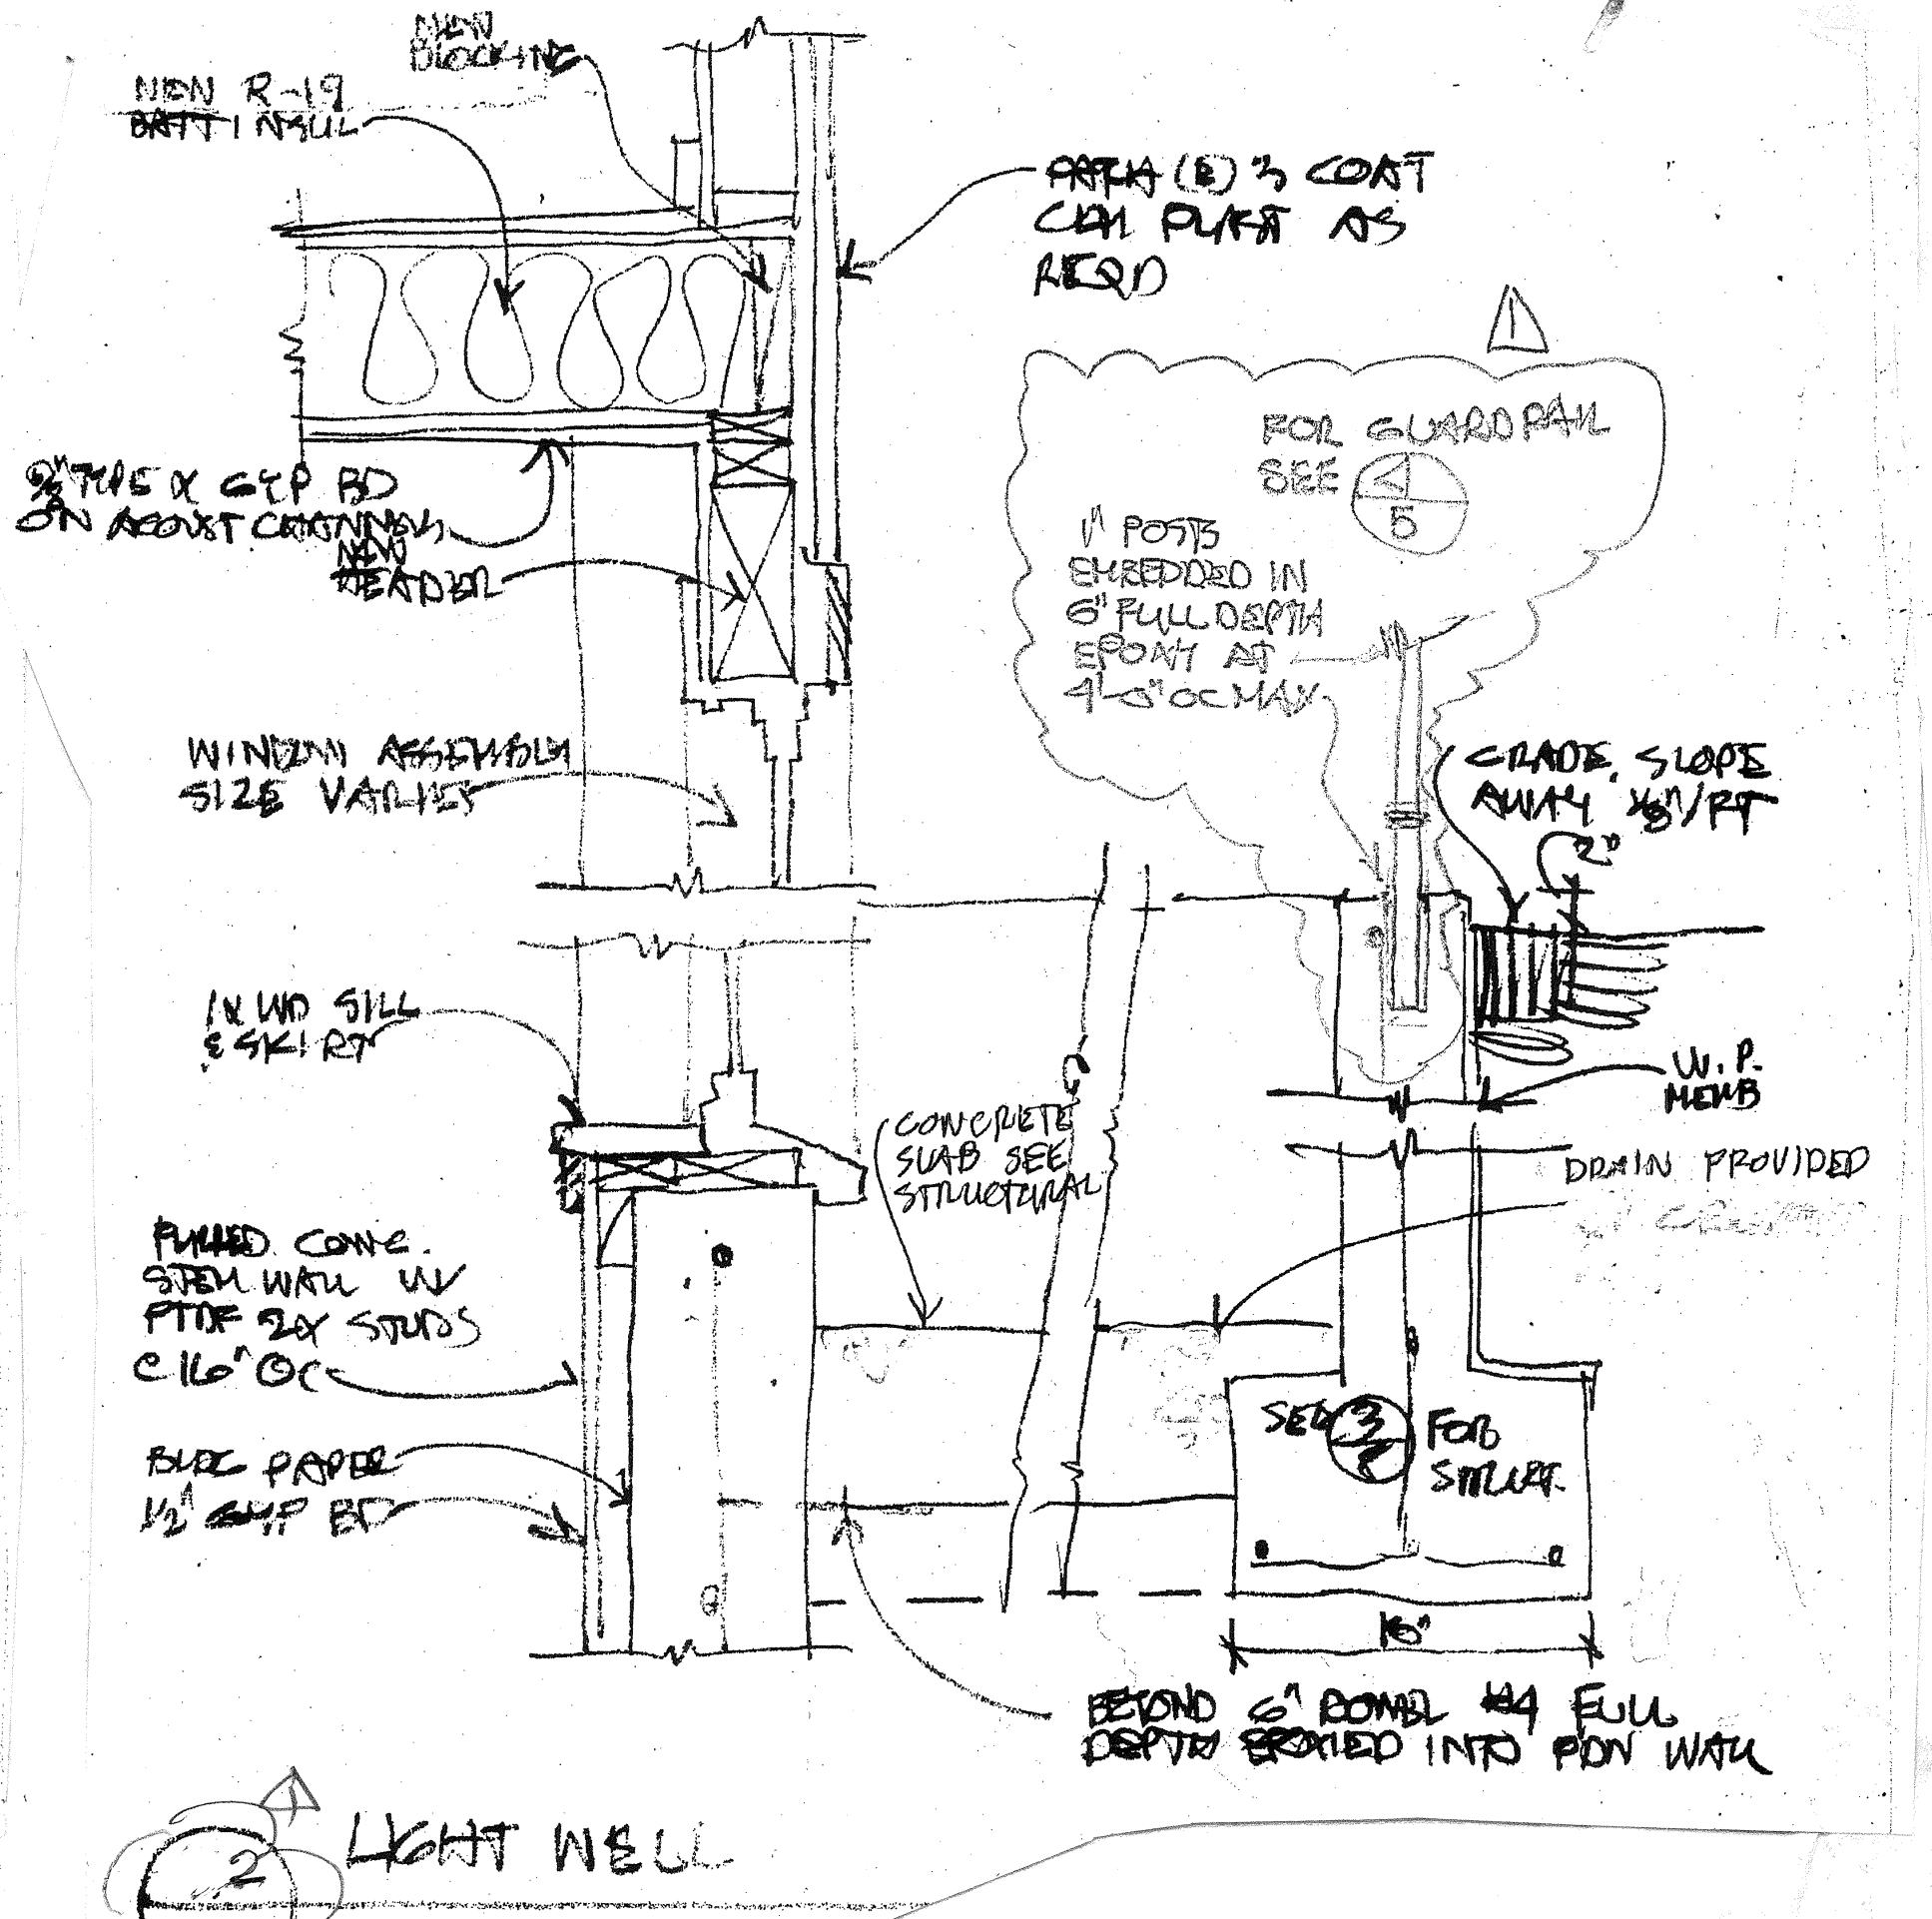 NEW
BLOCKING
NEW R-19
BATT INSUL
PATCH (E) 3 COAT
CEM PLAST AS
REQD
1
FOR GUARDRAIL
SEE 4
5
5/8" TYPE X GYP BD
ON ACOUST CHANNELS
NEW
HEADER
1" POSTS
EMBEDDED IN
6" FULL DEPTH
EPOXY AT
4'-0" OC MAX
WINDOW ASSEMBLY
SIZE VARIES
GRADE, SLOPE
AWAY 1/8"/FT
2"
1X WD SILL
& SKIRT
W.P.
MEMB
CONCRETE
SLAB SEE
STRUCTURAL
DRAIN PROVIDED
FURRED CONC.
STEM WALL W/
PTDF 2X STUDS
@ 16" OC
SEE 3 FOR
STRUCT.
BLDG PAPER
1/2" GYP BD
16"
BEYOND 6" DOWEL #4 FULL
DEPTH EPOXIED INTO FDN WALL
1
2 LIGHT WELL